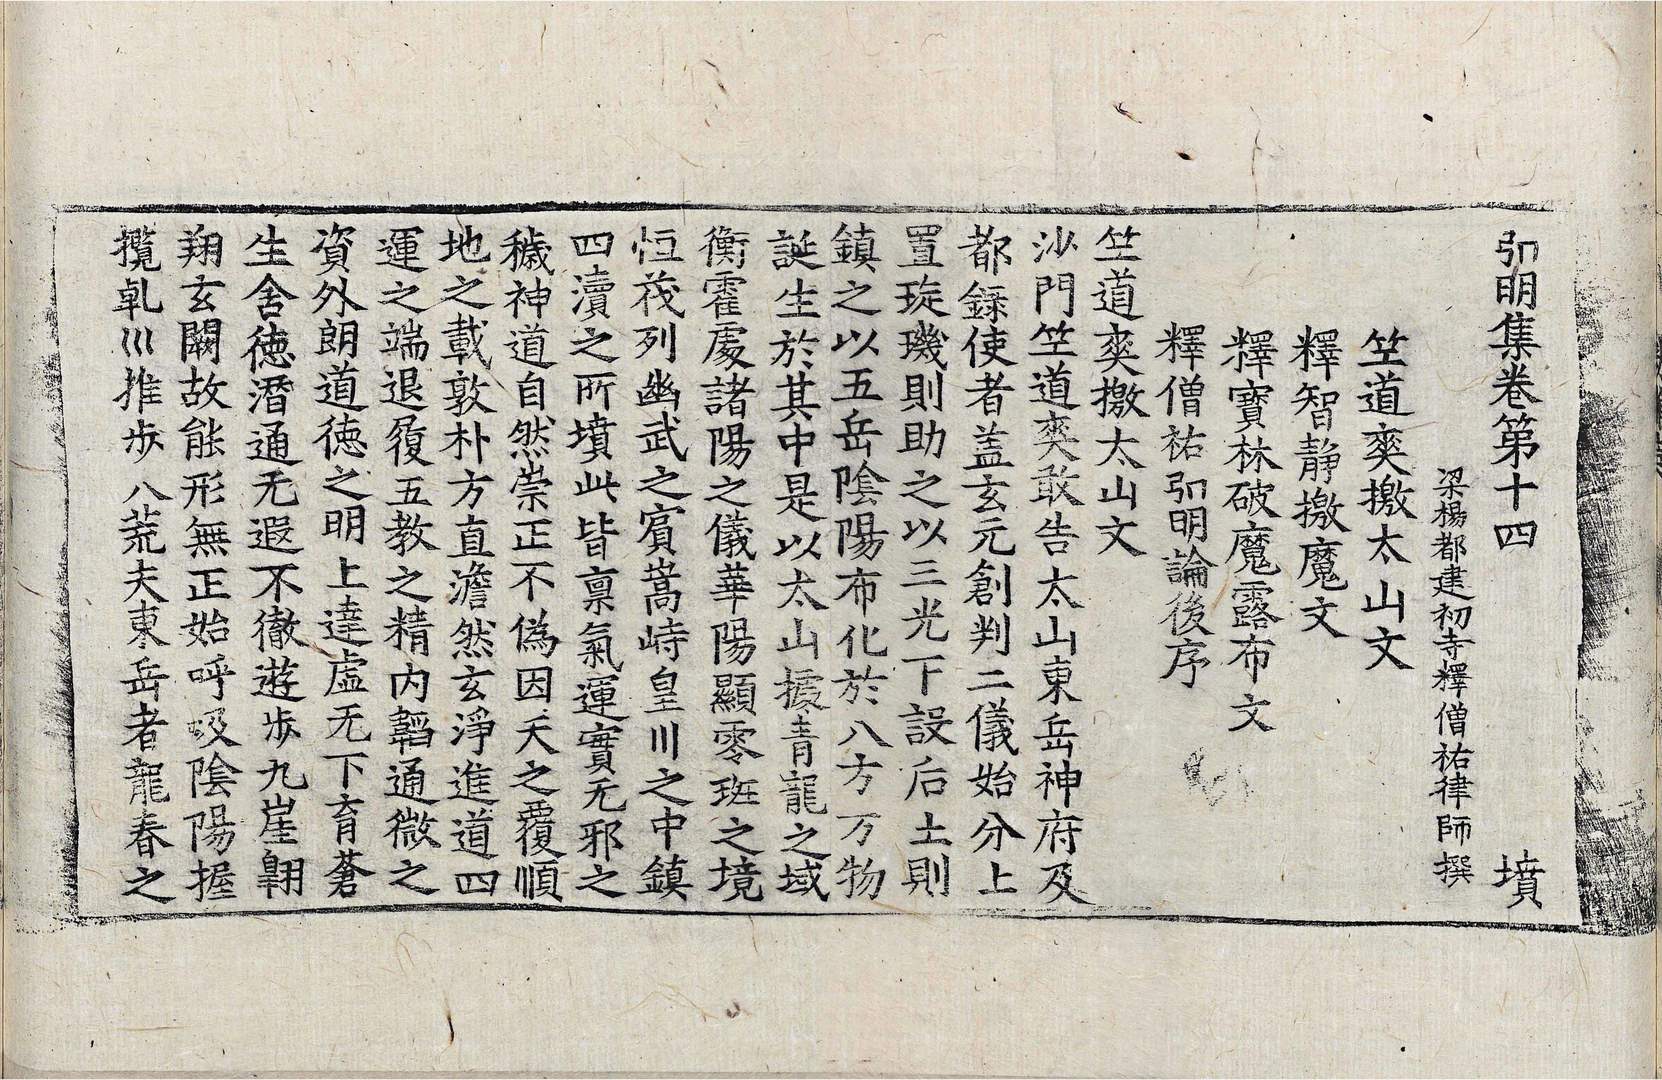 弘明集卷第十四 墳
梁楊都建初寺釋僧祐律師撰
竺道爽檄太山文
釋智靜檄魔文
釋寶林破魔露布文
釋僧祐弘明論後序
竺道爽檄太山文
沙門竺道爽敢告太山東岳神府及
都錄使者盖玄元創判二儀始分上
置琁璣則助之以三光下設后土則
鎮之以五岳陰陽布化於八方万物
誕生於其中是以太山據青龍之域
衡霍處諸陽之儀華陽顯零班之境
恒茷列幽武之賓嵩峙皇川之中鎮
四瀆之所墳此皆稟氣運實无邪之
穢神道自然崇正不偽因夭之覆順
地之載敦朴方直澹然玄淨進道四
運之端退履五教之精內韜通微之
資外朗道德之明上達虛无下育蒼
生含德潛通无遐不徹遊步九崖翺
翔玄闕故能形無正始呼吸陰陽握
攬乹巛推步八荒夫東岳者龍春之